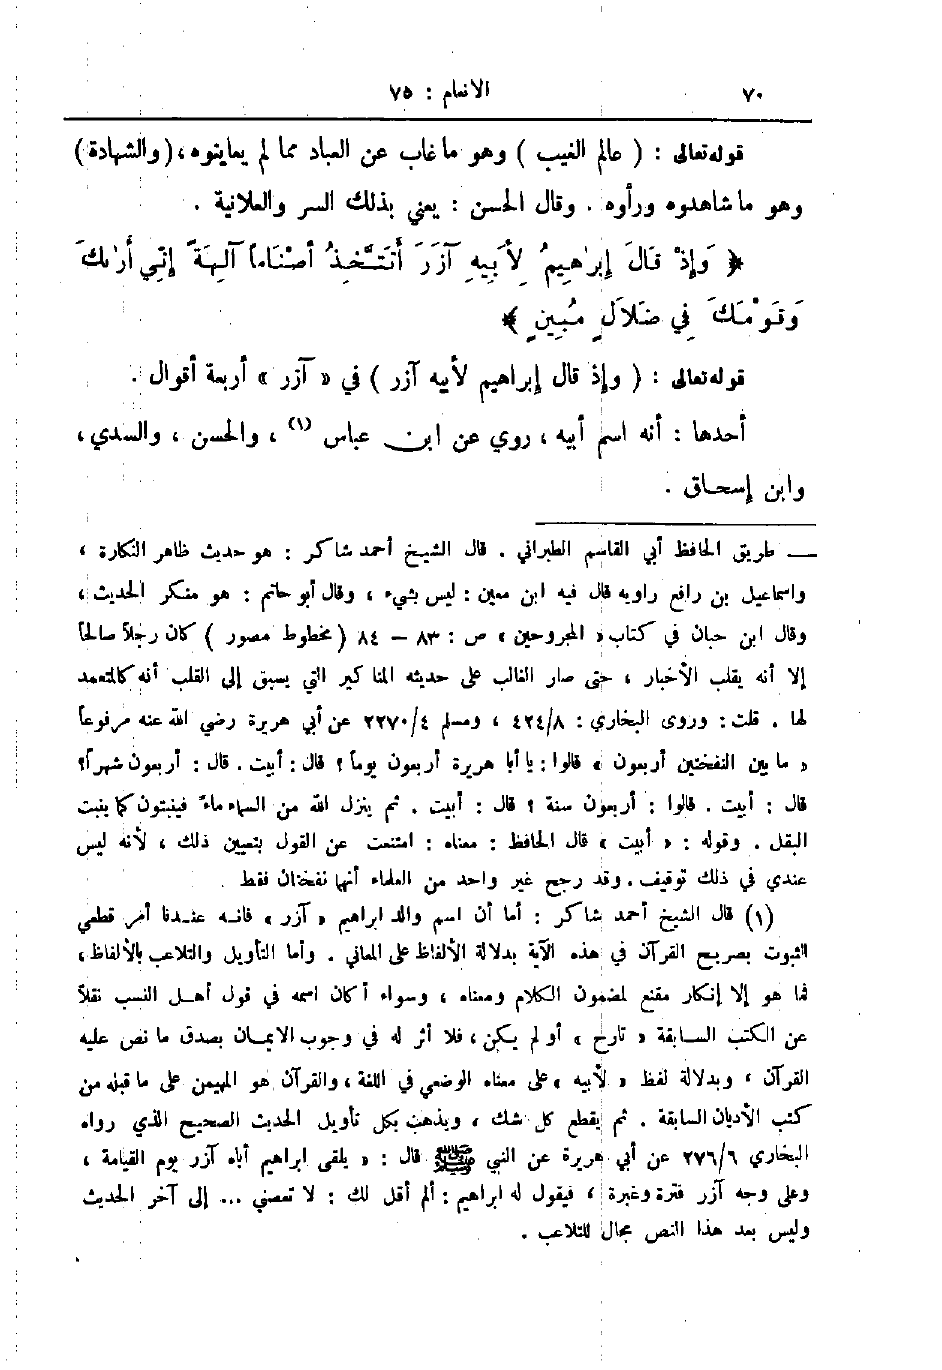 ٧٠ الانعام : ٧٥
قوله تعالى : ( عالم الغيب ) وهو ما غاب عن العباد مما لم يعاينوه ، (والشهادة)
وهو ما شاهدوه ورأوه . وقال الحسن : يعني بذلك السر والعلانية .
﴿ وَإِذْ قَالَ إِبرٰهِيمُ لِأَبِيهِ آزَرَ أَتَتَّخِذُ أَصْنَاماً آلِهَةً إِنِّي أَرٰىكَ
وَقَوْمَكَ فِي ضَلَالٍ مُبِينٍ ﴾
قوله تعالى : ( وإذ قال إبراهيم لأبيه آزر ) في « آزر » أربعة أقوال .
أحدها : أنه اسم أبيه ، روي عن ابن عباس (١) ، والحسن ، والسدي ،
وابن إسحاق .
ــ طريق الحافظ أبي القاسم الطبراني . قال الشيخ أحمد شاكر : هو حديث ظاهر النكارة ،
واسماعيل بن رافع راويه قال فيه ابن معين : ليس بشيء ، وقال أبو حاتم : هو منكر الحديث ،
وقال ابن حبان في كتاب « المجروحين » ص : ٨٣ – ٨٤ ( مخطوط مصور ) كان رجلاً صالحاً
إلا أنه يقلب الأخبار ، حتى صار الغالب على حديثه المناكير التي يسبق إلى القلب أنه كالمتعمد
لها . قلت : وروى البخاري : ٤٢٤/٨ ، ومسلم ٢٢٧٠/٤ عن أبي هريرة رضي الله عنه مرفوعاً
« ما بين النفختين أربعون » قالوا : يا أبا هريرة أربعون يوماً ؟ قال : أبيت . قال : أربعون شهراً؟
قال : أبيت . قالوا : أربعون سنة ؟ قال : أبيت . ثم ينزل الله من السماء ماءً فينبتون كما ينبت
البقل . وقوله : « أبيت » قال الحافظ : معناه : امتنعت عن القول بتعيين ذلك ، لأنه ليس
عندي في ذلك توقيف . وقد رجح غير واحد من العلماء أنها نفختان فقط .
(١) قال الشيخ أحمد شاكر : أما أن اسم والد ابراهيم « آزر » فانه عندنا أمر قطعي
الثبوت بصريح القرآن في هذه الآية بدلالة الألفاظ على المعاني . وأما التأويل والتلاعب بالألفاظ ،
فما هو إلا إنكار مقنع لمضمون الكلام ومعناه ، وسواء أكان اسمه في قول أهل النسب نقلاً
عن الكتب السابقة « تارح » أو لم يكن ، فلا أثر له في وجوب الايمان بصدق ما نص عليه
القرآن ، وبدلالة لفظ « لأبيه » على معناه الوضعي في اللغة ، والقرآن هو المهيمن على ما قبله من
كتب الأديان السابقة . ثم يقطع كل شك ، ويذهب بكل تأويل الحديث الصحيح الذي رواه
البخاري ٢٧٦/٦ عن أبي هريرة عن النبي ﷺ قال : « يلقى ابراهيم أباه آزر يوم القيامة ،
وعلى وجه آزر قترة وغبرة ، فيقول له ابراهيم : ألم أقل لك : لا تعصني ... إلى آخر الحديث
وليس بعد هذا النص مجال للتلاعب .